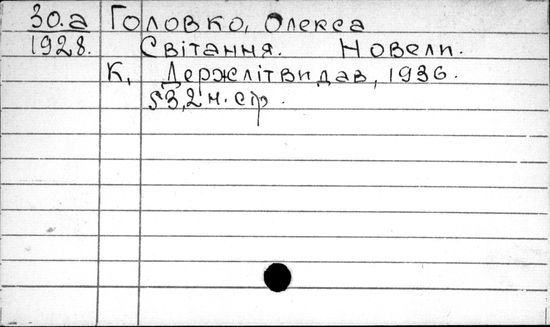 30.а Головко, Олекса
1928. Світання. Новели.
К, Держлітвидав, 1936.
83,2 н. стр.